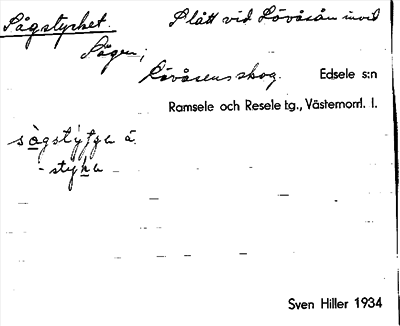 Sågstycket. Slått vid Lövåsån invid
Sågen;
Lövåsens skog. Edsele s:n
Ramsele och Resele tg., Västernorrl. l.
sågstyṭʃa á.
- styka
Sven Hiller 1934